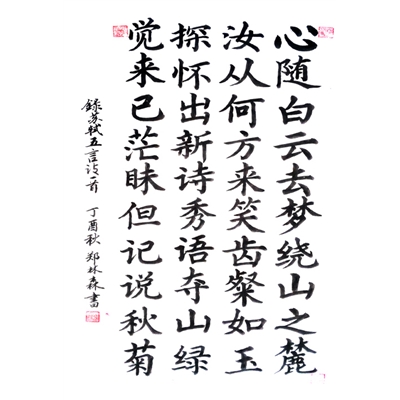 心随白云去梦绕山之麓
汝从何方来笑齿粲如玉
探怀出新诗秀语夺山绿
觉来已茫昧但记说秋菊
録苏轼五言诗一首 丁酉秋 郑林森书